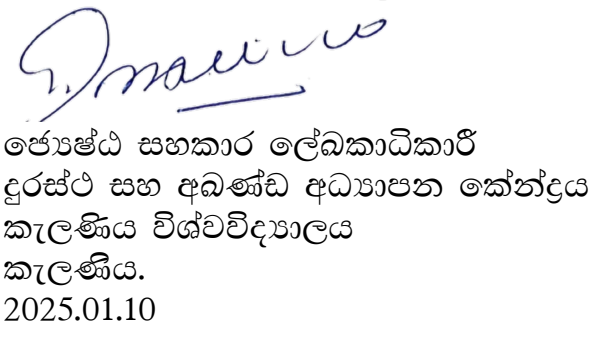 ජ්‍යෙෂ්ඨ සහකාර ලේඛකාධිකාරී
දුරස්ථ සහ අඛණ්ඩ අධ්‍යාපන කේන්ද්‍රය
කැලණිය විශ්වවිද්‍යාලය
කැලණිය.
2025.01.10